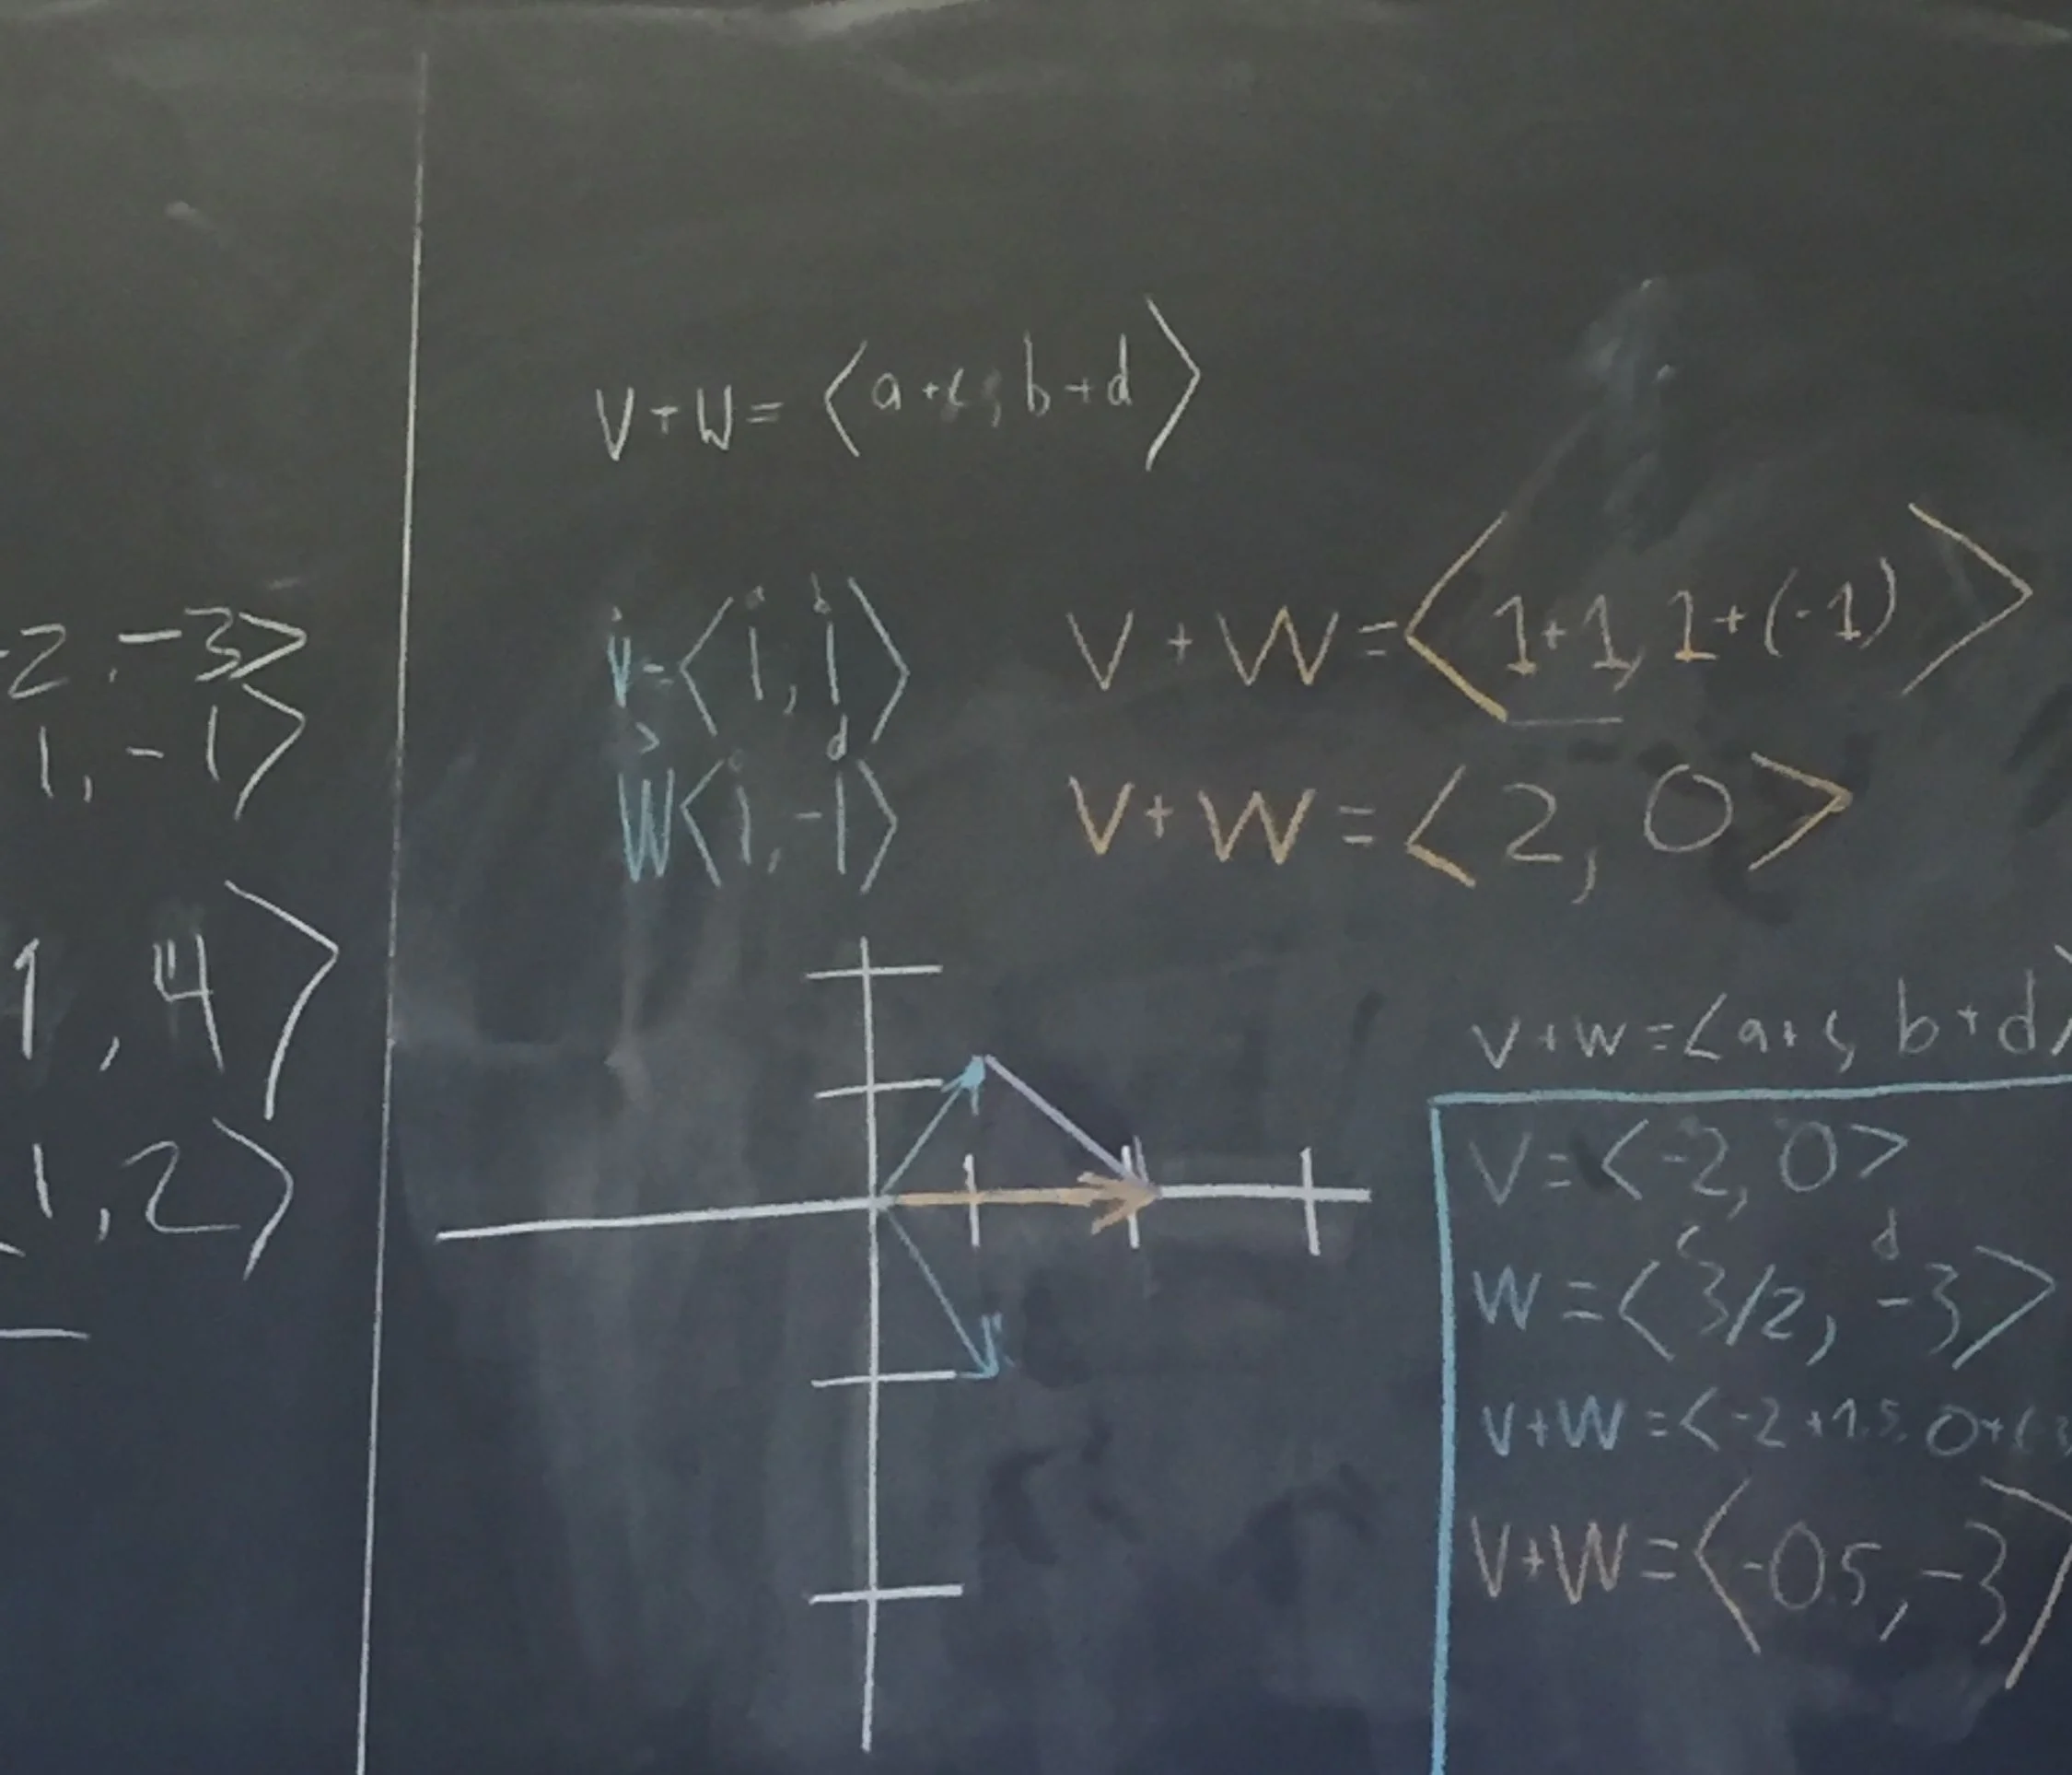 2, -3>
1, -1>
1, 4>
1, 2>
V+W= <a+c, b+d>
a b
V=<1, 1>
d
W<1, -1>
V+W=<1+1, 1+(-1)>
V+W=<2, 0>
V+W=<a+c, b+d>
V=<-2, 0>
c d
W=<3/2, -3>
V+W=<-2+1.5, 0+(-3
V+W=<-0.5, -3>